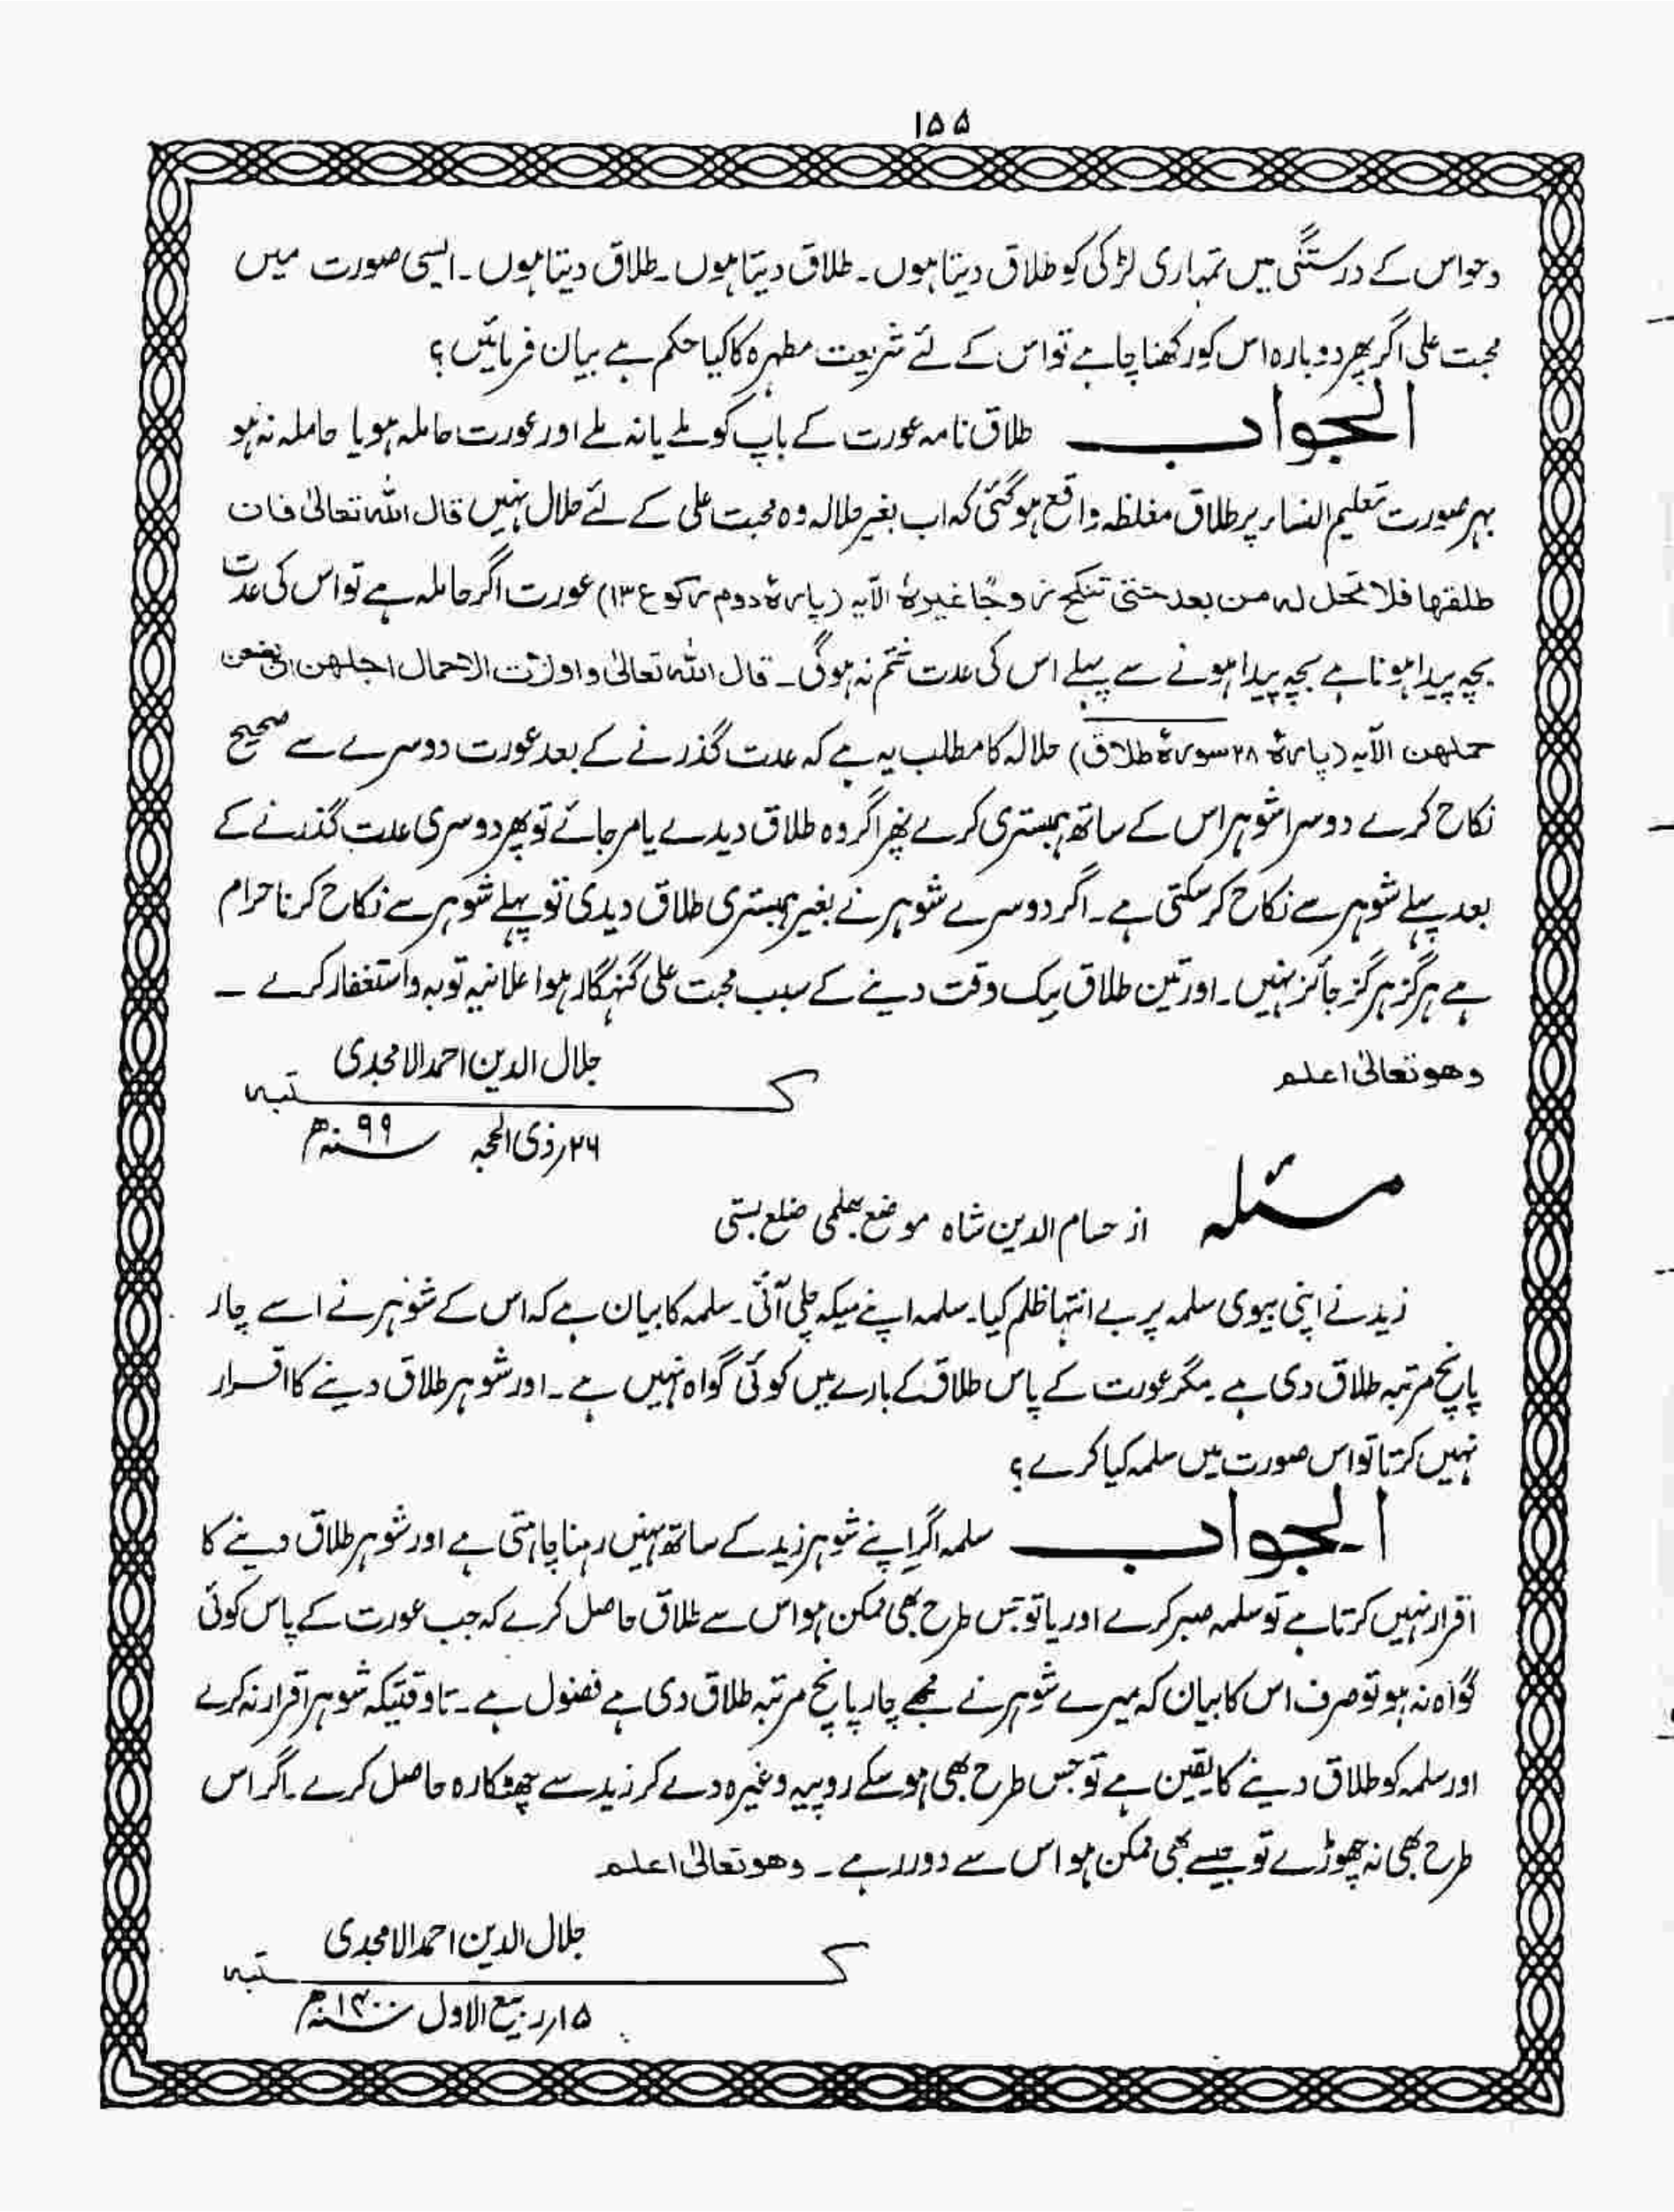 ۱۵۵
وحواس کے درستگی میں تمہاری لڑکی کو طلاق دیتا ہوں۔ طلاق دیتا ہوں۔ طلاق دیتا ہوں۔ ایسی صورت میں
محبت علی اگر پھر دوبارہ اس کو رکھنا چاہے تو اس کے لئے شریعت مطہرہ کا کیا حکم ہے بیان فرمائیں؟
الجواب طلاق نامہ عورت کے باپ کو ملے یا نہ ملے اور عورت حاملہ ہو یا حاملہ نہ ہو
بہر صورت تعلیم النساء پر طلاق مغلظہ واقع ہو گئی کہ اب بغیر حلالہ وہ محبت علی کے لئے حلال نہیں قال اللہ تعالیٰ فان
طلقہا فلا تحل لہ من بعد حتی تنکح زوجًا غیرہ الآیہ (پارۂ دوم رکوع ۱۳) عورت اگر حاملہ ہے تو اس کی عدت
بچہ پیدا ہونا ہے بچہ پیدا ہونے سے پہلے اس کی عدت ختم نہ ہوگی۔ قال اللہ تعالیٰ واولات الاحمال اجلھن ان یضعن
حملھن الآیہ (پارۂ ۲۸ سورۂ طلاق) حلالہ کا مطلب یہ ہے کہ عدت گذرنے کے بعد عورت دوسرے سے صحیح
نکاح کرے دوسرا شوہر اس کے ساتھ ہمبستری کرے پھر اگر وہ طلاق دیدے یا مر جائے تو پھر دوسری عدت گذرنے کے
بعد پہلے شوہر سے نکاح کر سکتی ہے۔ اگر دوسرے شوہر نے بغیر ہمبستری طلاق دیدی تو پہلے شوہر سے نکاح کرنا حرام
ہے ہرگز ہرگز جائز نہیں۔ اور تین طلاق بیک وقت دینے کے سبب محبت علی گنہگار ہوا علانیہ توبہ واستغفار کرے ۔
وھو تعالیٰ اعلم
جلال الدین احمد الامجدی
کتبہ
۲۶؍ ذی الحجہ ۹۹ سنہ ھ
مسئلہ از حسام الدین شاہ موضع بھلمی ضلع بستی
زید نے اپنی بیوی سلمہ پر بے انتہا ظلم کیا۔ سلمہ اپنے میکہ چلی آئی۔ سلمہ کا بیان ہے کہ اس کے شوہر نے اسے چار
پانچ مرتبہ طلاق دی ہے۔ مگر عورت کے پاس طلاق کے بارے میں کوئی گواہ نہیں ہے۔ اور شوہر طلاق دینے کا اقرار
نہیں کرتا تو اس صورت میں سلمہ کیا کرے؟
الجواب سلمہ اگر اپنے شوہر زید کے ساتھ نہیں رہنا چاہتی ہے اور شوہر طلاق دینے کا
اقرار نہیں کرتا ہے تو سلمہ صبر کرے اور یا تو جس طرح بھی ممکن ہو اس سے طلاق حاصل کرے کہ جب عورت کے پاس کوئی
گواہ نہ ہو تو صرف اس کا بیان کہ میرے شوہر نے مجھے چار پانچ مرتبہ طلاق دی ہے فضول ہے۔ تاوقتیکہ شوہر اقرار نہ کرے
اور سلمہ کو طلاق دینے کا یقین ہے تو جس طرح بھی ہو سکے روپیہ وغیرہ دے کر زید سے چھٹکارہ حاصل کرے۔ اگر اس
طرح بھی نہ چھوڑے تو جیسے بھی ممکن ہو اس سے دور رہے۔ وھو تعالیٰ اعلم
جلال الدین احمد الامجدی
کتبہ
۱۵؍ ربیع الاول ۱۴۰۰ سنہ ھ